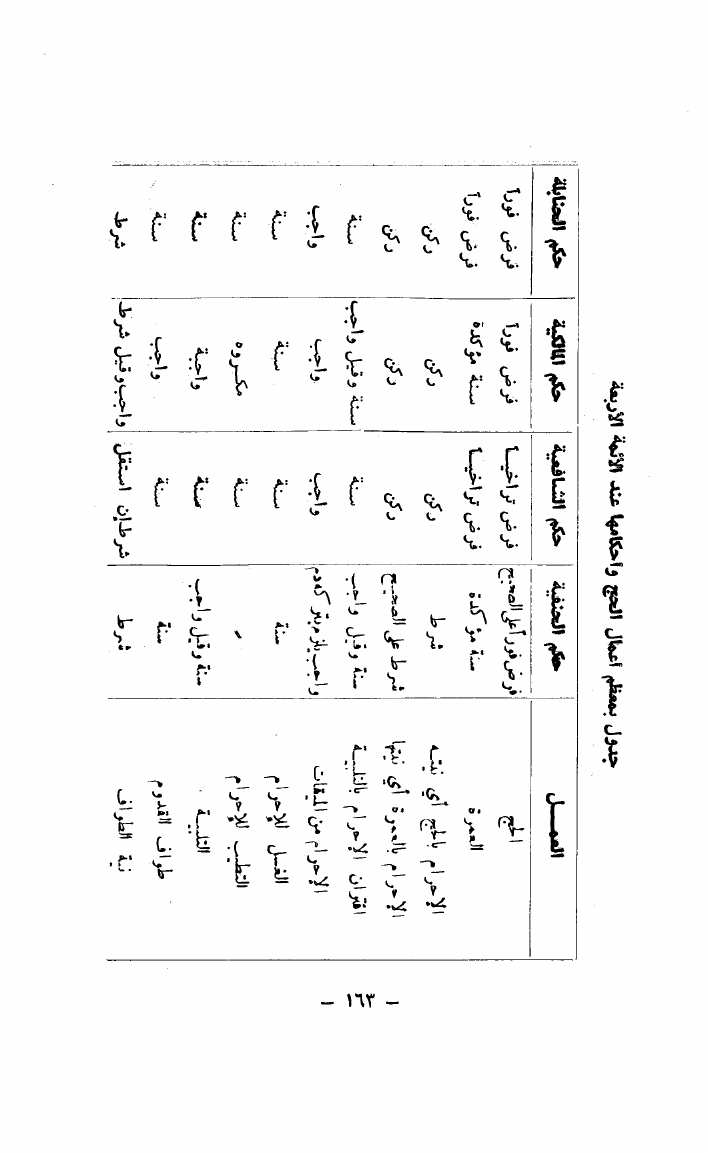 جدول بمعظم اعمال الحج واحكامها عند الأئمة الأربعة
العمـل حكم الحنفية حكم الشافعية حكم المالكية حكم الحنابلة
الحج فرض فوراً على الصحيح فرض تراخيـاً فرض فوراً فرض فوراً
العمرة سنة مؤكدة فرض تراخيـاً سنة مؤكدة فرض فوراً
الإحرام بالحج أي نيته شرط ركن ركن ركن
الإحرام بالعمرة أي نيتها شرط على الصحيح ركن ركن ركن
اقتران الإحرام بالتلبية سنة وقيل واجب سنة سنة وقيل واجب سنة
الإحرام من الميقات واجب يلزم بتركه دم واجب واجب واجب
الغسل للإحرام سنة سنة سنة سنة
التطيب للإحرام سنة مكروه سنة
التلبية سنة وقيل واجب سنة واجبة سنة
طواف القدوم سنة سنة واجب سنة
نية الطواف شرط شرط إن استقل واجب وقيل شرط شرط
– ١٦٣ –